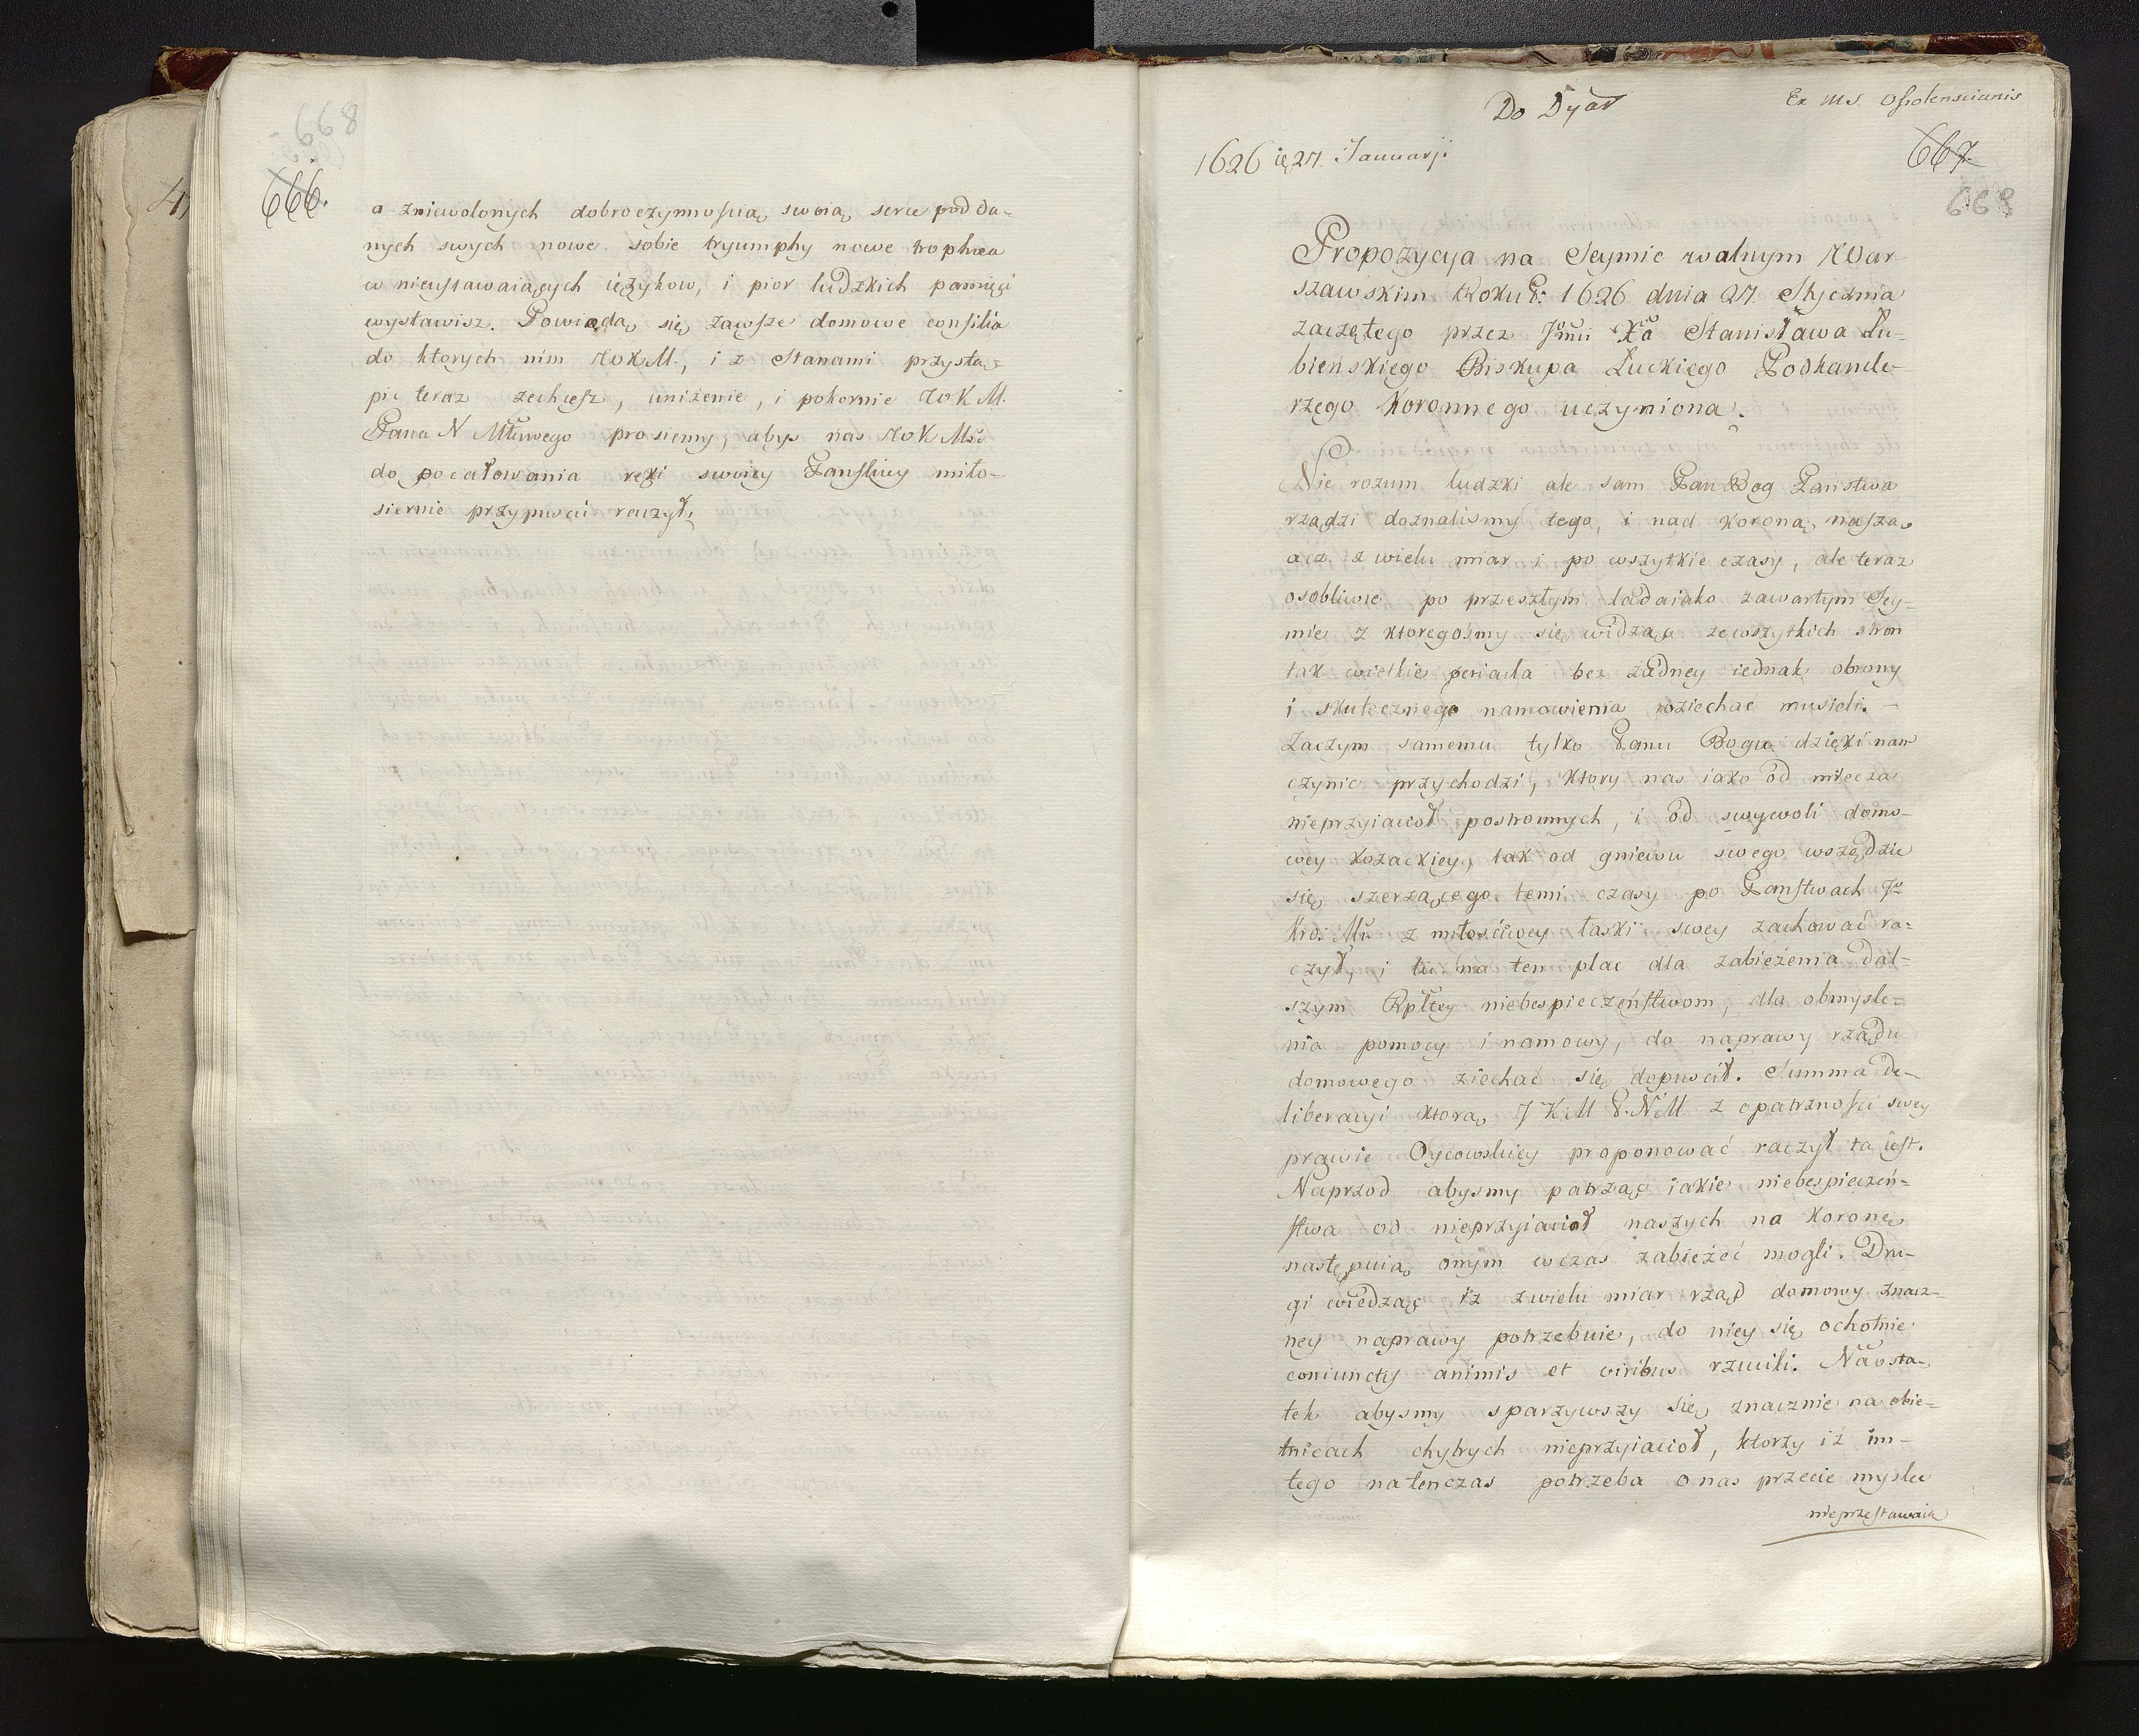 668
666.
a zniewolonych dobroczynnością swoią serce podda-
nych swych nowe sobie tryumphy nowe trophæa
w nieustawaiących ięzykow, i pior ludzkich pamięci
wystawisz. Powiodą się zawsze domowe consilia
do ktorych nim WKM., i z Stanami przystą-
pic teraz zechcesz, uniżenie, i pokornie WKM.
Pana N Młciwego prosiemy, abys nas WKMść
do pocałowania ręki swoiey Pańskiey miło-
siernie przypuscić raczył.
Do Dyar
Ex MS. Ossolenscianis
1626 27. Januarj.
667.
668
Propozycya na Seymie walnym War
szawskim Roku P: 1626 dnia 27. Stycznia
zaczętego przez Jmci Xa Stanisława Łu-
bieńskiego Biskupa Łuckiego Podkancle-
rzego Koronnego uczyniona.
Nie rozum ludzki ale sam Pan Bog Państwa
rządzi doznalismy tego, i nad Koroną naszą
acz z wielu miar i po wszytkie czasy, ale teraz
osobliwie po przeszłym ladaiako zawartym Sey-
mie z ktoregośmy się widząc zewszytkich stron
tak wielkie pericula bez żadney iednak obrony
i skutecznego namowienia roziechać musieli. -
Zaczym samemu tylko Panu Bogu dzięki nam
czynic przychodzi, ktory nas iako od miecza
nieprzyiacioł postronnych, i od swywoli domo-
wey kozackiey, tak od gniewu swego wszędzie
się szerzącego temi czasy po Państwach Jo
Kro: Mci z miłościwey łaski swey zachować ra-
czył, i tu na ten plac dla zabieżenia dal-
szym Rpltey niebespieczeństwom, dla obmysle-
nia pomocy i namowy, do naprawy rządu
domowego ziechać się dopuscił. Summa de-
liberacyi ktorą J K.M P.N.M z opatrzności swey
prawie Oycowskiey proponować raczył ta iest.
Naprzod abysmy patrząc iakie niebespieczeń-
stwa od nieprzyiacioł naszych na Koronę
następuią onym wczas zabieżeć mogli. Dru-
gi wiedząc iż zwielu miar rząd domowy znacz-
ney naprawy potrzebuie, do niey się ochotnie
coniunctis animis et viribus rzucili. Naosta-
tek abysmy sparzywszy się znacznie na obie-
tnicach chytrych nieprzyiacioł, ktorzy iż im-
tego natenczas potrzeba o nas przecie myslec
nieprzestawaią